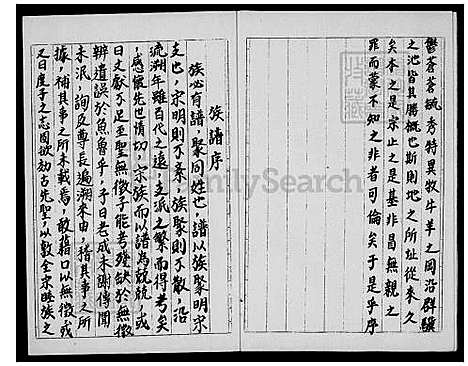 鬱蒼蒼毓秀特異牧牛羊之岡沿群驥
之池皆其勝概也斯則地之所址從來久
矣本之是宗止之是基非昌無親之
罪而蒙不知之非者可倫矣于是乎序
族譜序
族必有譜聚同姓也譜以族聚明宗
支也宗明則不紊族聚則不散沿
流溯年雖百代之遠支派之繁而得考矣
感懷先也情切宗族而以譜為兢兢或
曰文獻不足至聖無徵子能考殘缺於無徵
辨遺誤於魚魯乎予曰老成未謝傳聞
未泯詢及尊長遍溯来由稽其事之所
據補其事之所未載焉敢藉口以無徵或
又曰崖子之志固欲効古先聖以敦全宗睦族之
FamilySearch